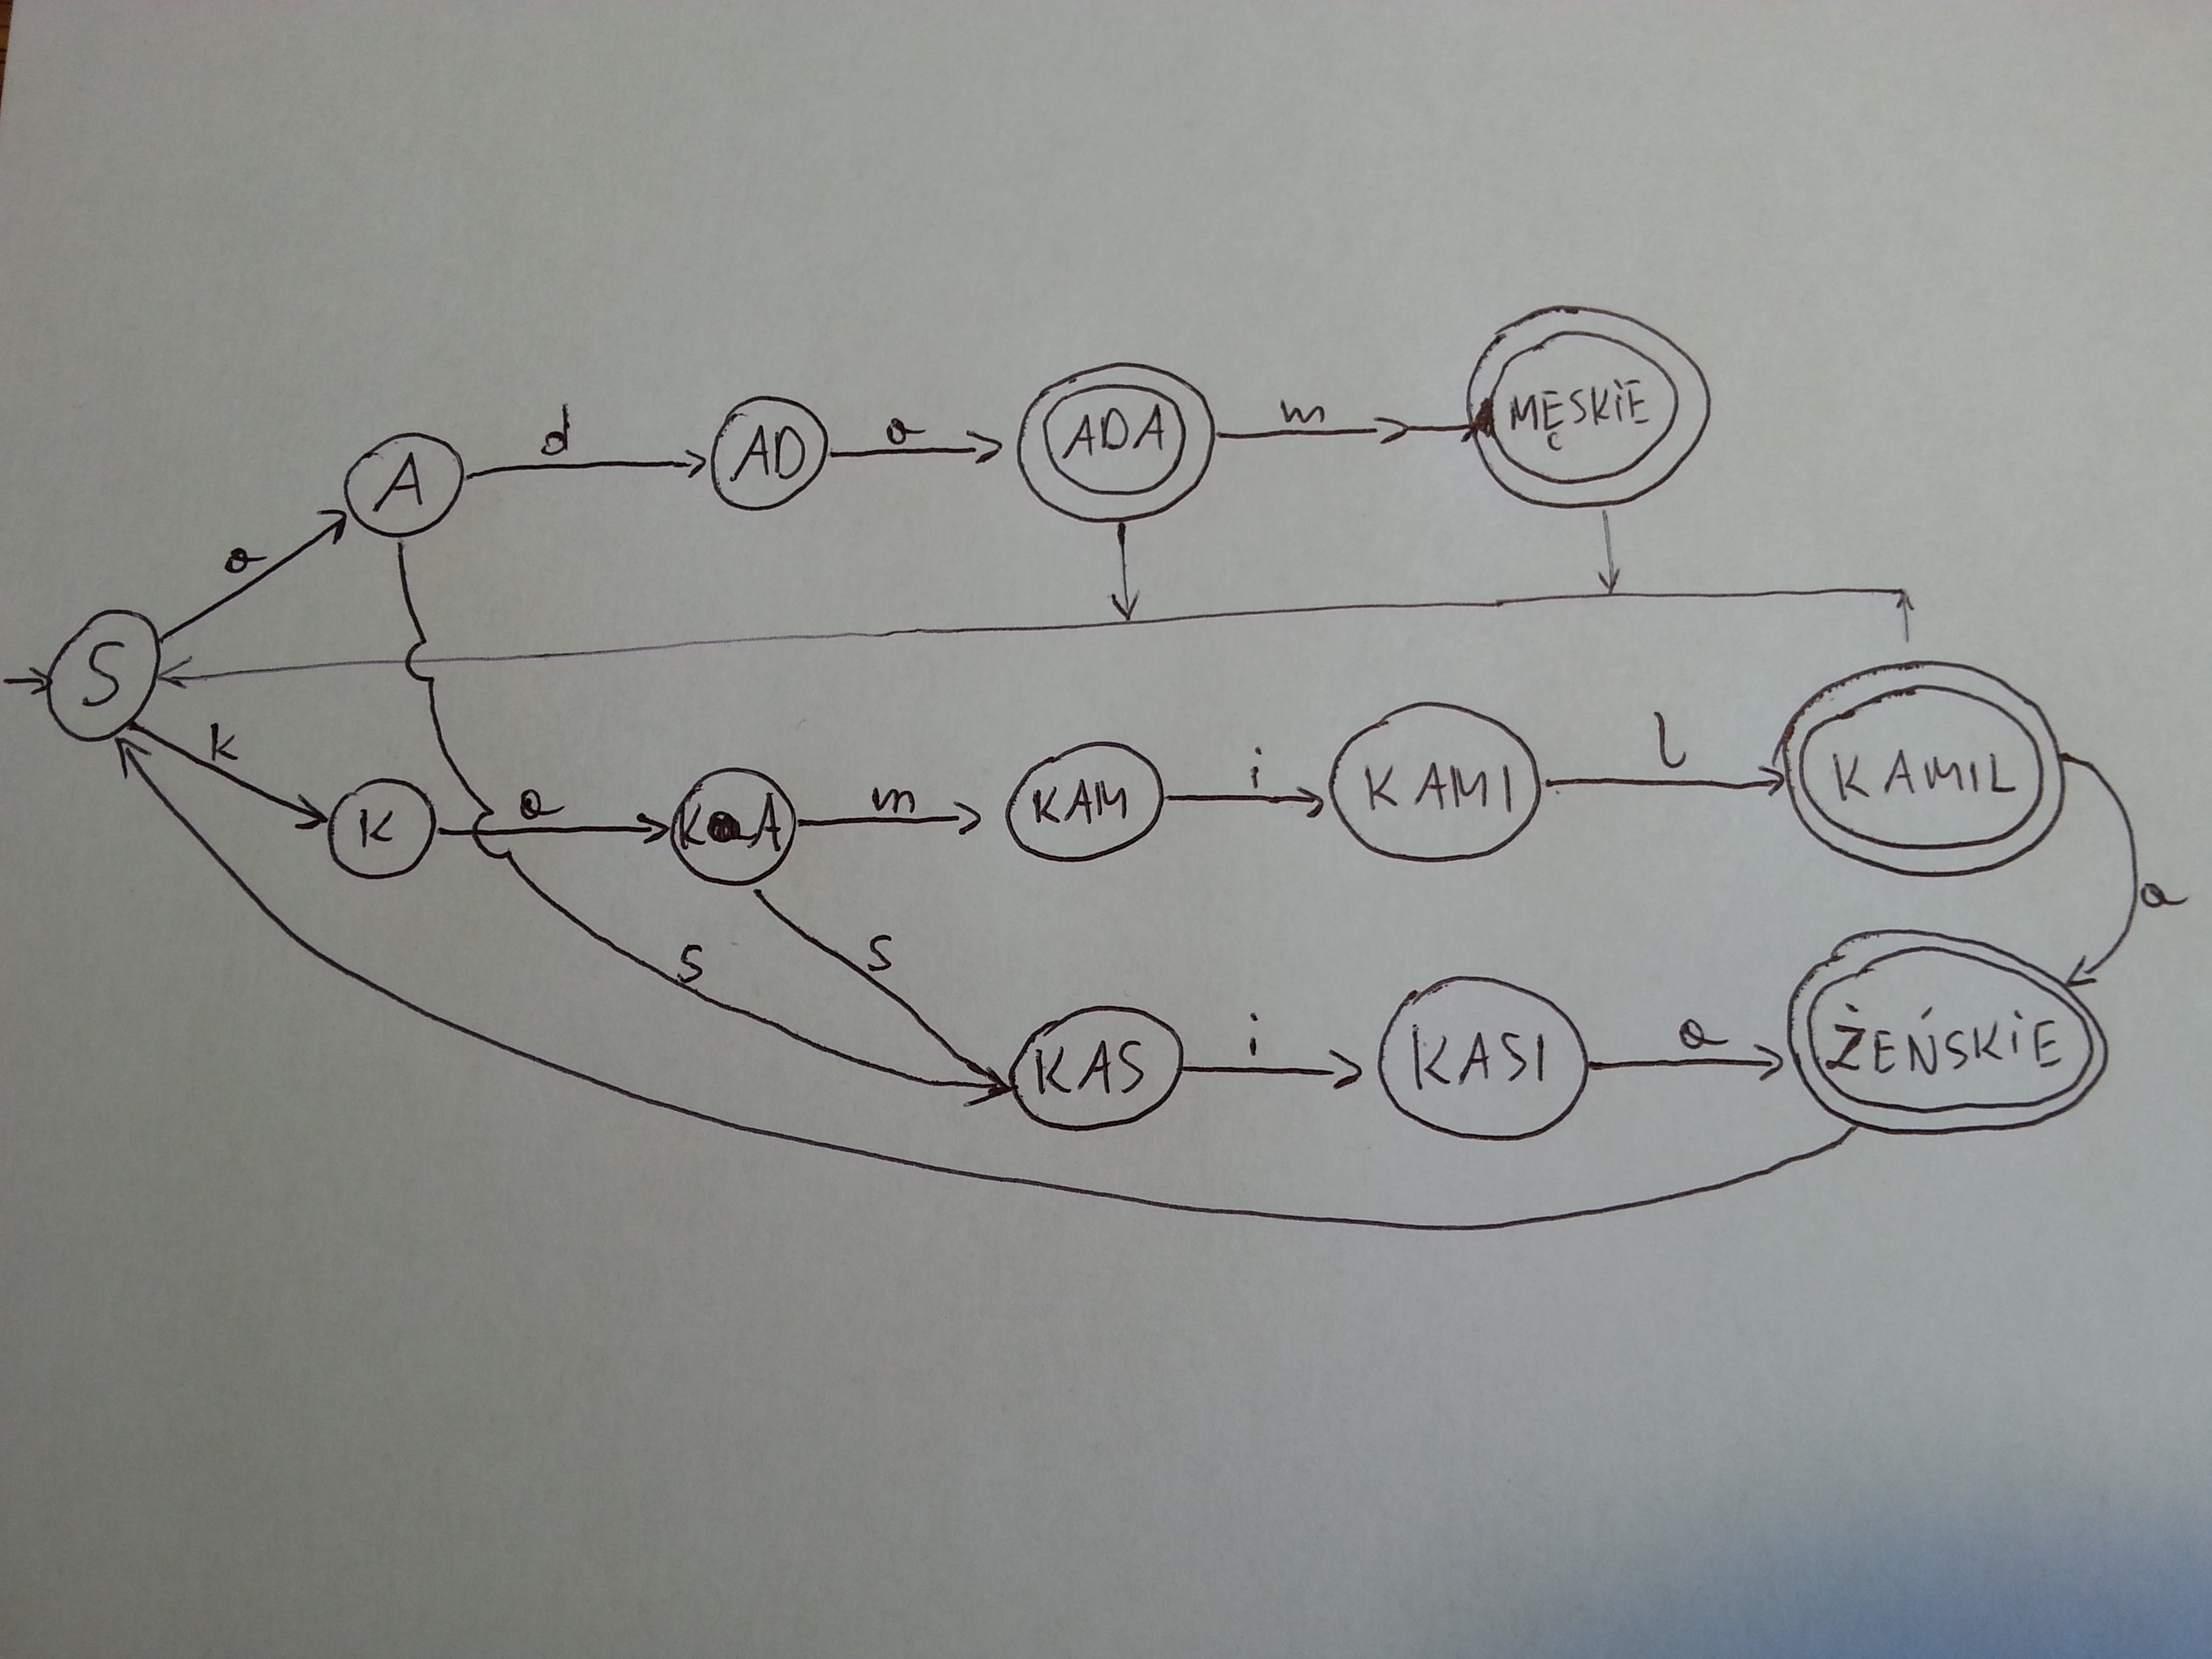 a
A
d
AD
a
ADA
m
MĘSKIE
S
k
K
a
KA
m
KAM
i
KAMI
l
KAMIL
a
s
s
KAS
i
KASI
a
ŻEŃSKIE